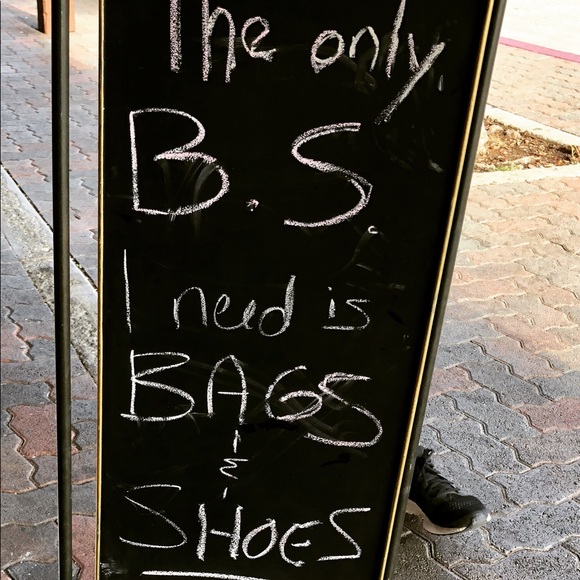 The only
B.S.
I need is
BAGS
&
SHOES